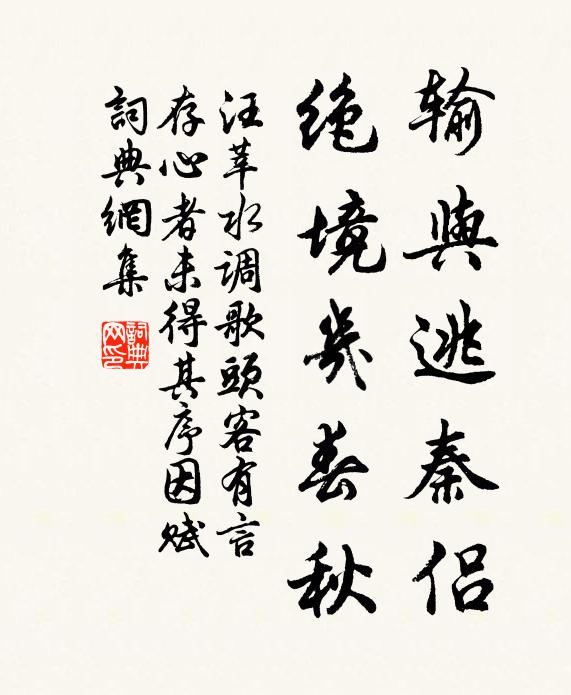 输与逃秦侣
绝境几春秋
汪莘水调歌头客有言
存心者未得其序因赋
词典网集
詞典网印